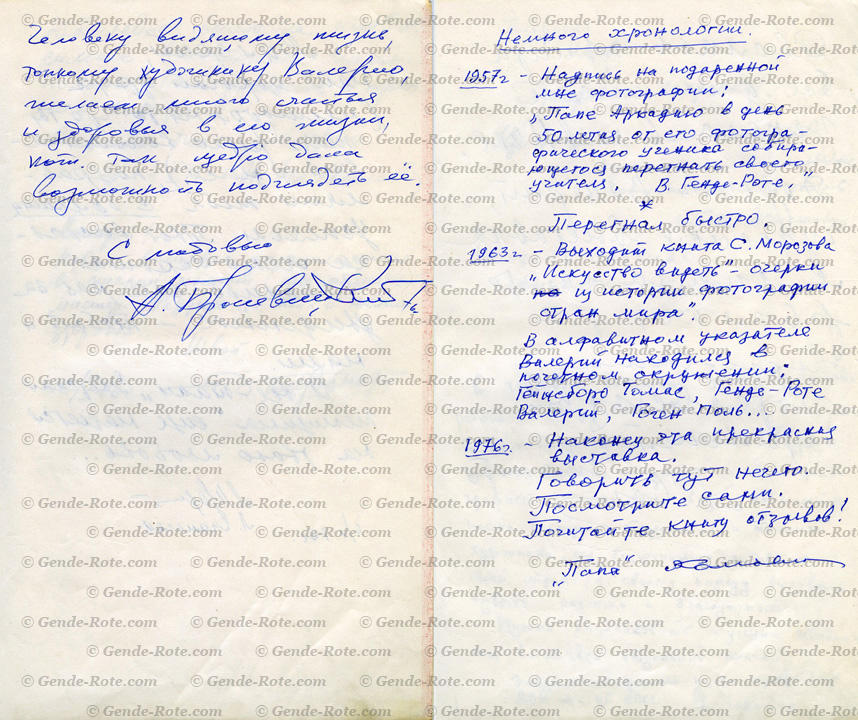 Человеку видящему жизнь,
тонкому художнику Валерию,
желаем много счастья
и здоровья в его жизни,
кот. так щедро дала
возможность подглядеть её.
С любовью
А.
Немного хронологии.
1957г – Надпись на подаренной
мне фотографии:
„Папе Аркадию в день
50 летия от его фотогра-
фического ученика собира-
ющегося перегнать своего
учителя. В. Генде-Роте."
*
Перегнал быстро.
1963г – Выходит книга С. Морозова
„Искусство видеть" – очерки
из истории фотографии
стран мира".
В алфавитном указателе
Валерий находился в
почетном окружении:
Гейнсборо Томас, Генде-Роте
Валерий, Гоген Поль...
1976г. – Наконец эта прекрасная
выставка.
Говорить тут нечего.
Посмотрите сами.
Почитайте книгу отзывов!
„Папа"
© Gende-Rote.com